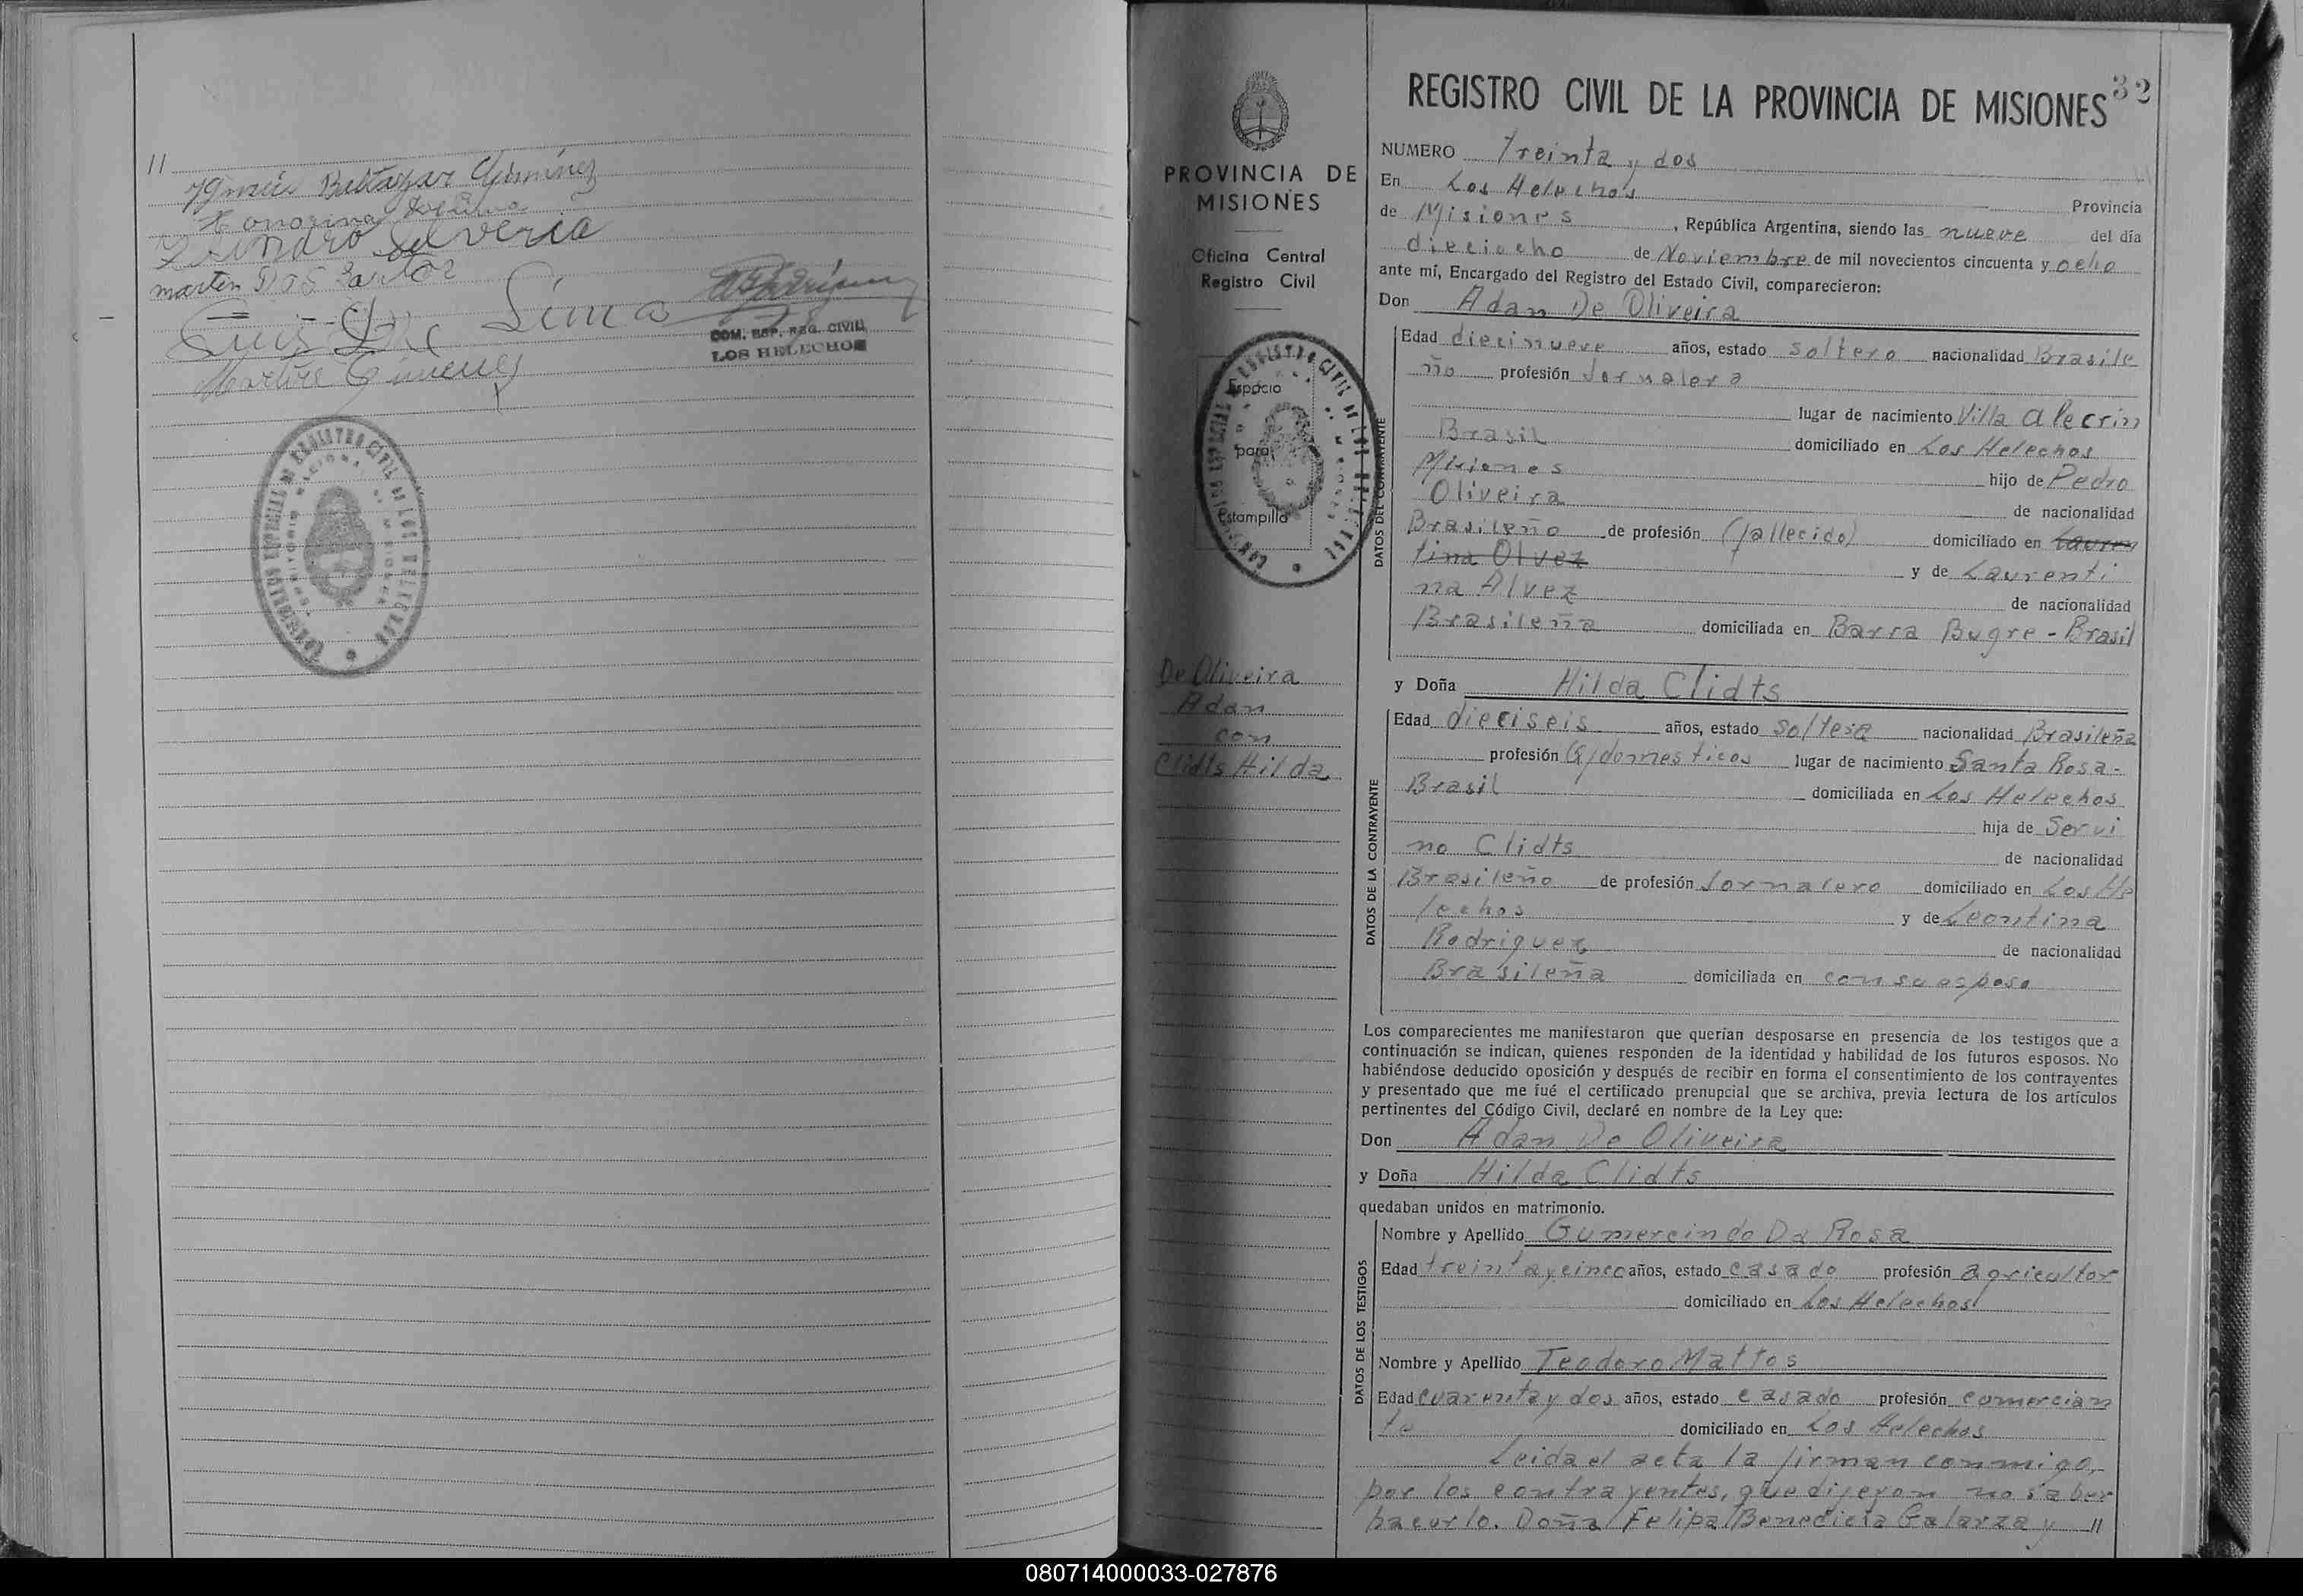 //
Ygnacio Baltazar Gimenez
Honorina
Lisandro Silveria
martin Dos Santos
Luis De Lima
COM. ESP. REG. CIVIL
LOS HELECHOS
Martire Gimenez
32
REGISTRO CIVIL DE LA PROVINCIA DE MISIONES
PROVINCIA DE
MISIONES
Oficina Central
Registro Civil
Espacio
para
Estampilla
De Oliveira
Adan
con
Clidts Hilda
NUMERO Treinta y dos
En Los Helechos Provincia
de Misiones, República Argentina, siendo las nueve del día
dieciocho de Noviembre de mil novecientos cincuenta y ocho
ante mí, Encargado del Registro del Estado Civil, comparecieron:
Don Adan De Oliveira
DATOS DEL CONTRAYENTE
Edad diecinueve años, estado soltero nacionalidad Brasile
ño profesión Jornalero
lugar de nacimiento Villa Alecrin
Brasil domiciliado en Los Helechos
Misiones hijo de Pedro
Oliveira de nacionalidad
Brasileño de profesión (fallecido) domiciliado en Lauren
tina Olvez y de Laurenti
na Alvez de nacionalidad
Brasileña domiciliada en Barra Bugre - Brasil
y Doña Hilda Clidts
DATOS DE LA CONTRAYENTE
Edad dieciseis años, estado soltera nacionalidad Brasileña
profesión Q/domesticos lugar de nacimiento Santa Rosa -
Brasil domiciliada en Los Helechos
hija de Servi
no Clidts de nacionalidad
Brasileño de profesión Jornalero domiciliado en Los He
lechos y de Leontina
Rodriguez de nacionalidad
Brasileña domiciliada en con su esposo
Los comparecientes me manifestaron que querían desposarse en presencia de los testigos que a
continuación se indican, quienes responden de la identidad y habilidad de los futuros esposos. No
habiéndose deducido oposición y después de recibir en forma el consentimiento de los contrayentes
y presentado que me fué el certificado prenupcial que se archiva, previa lectura de los artículos
pertinentes del Código Civil, declaré en nombre de la Ley que:
Don Adan De Oliveira
y Doña Hilda Clidts
quedaban unidos en matrimonio.
DATOS DE LOS TESTIGOS
Nombre y Apellido Gumercindo Da Rosa
Edad treinta y cinco años, estado casado profesión agricultor
domiciliado en Los Helechos
Nombre y Apellido Teodoro Mattos
Edad cuarenta y dos años, estado casado profesión comercian
te domiciliado en Los Helechos
Leida el acta la firman conmigo,
por los contrayentes, que dijeron no saber
hacerlo. Doña Felipa Benedicta Galarza y //
080714000033-027876